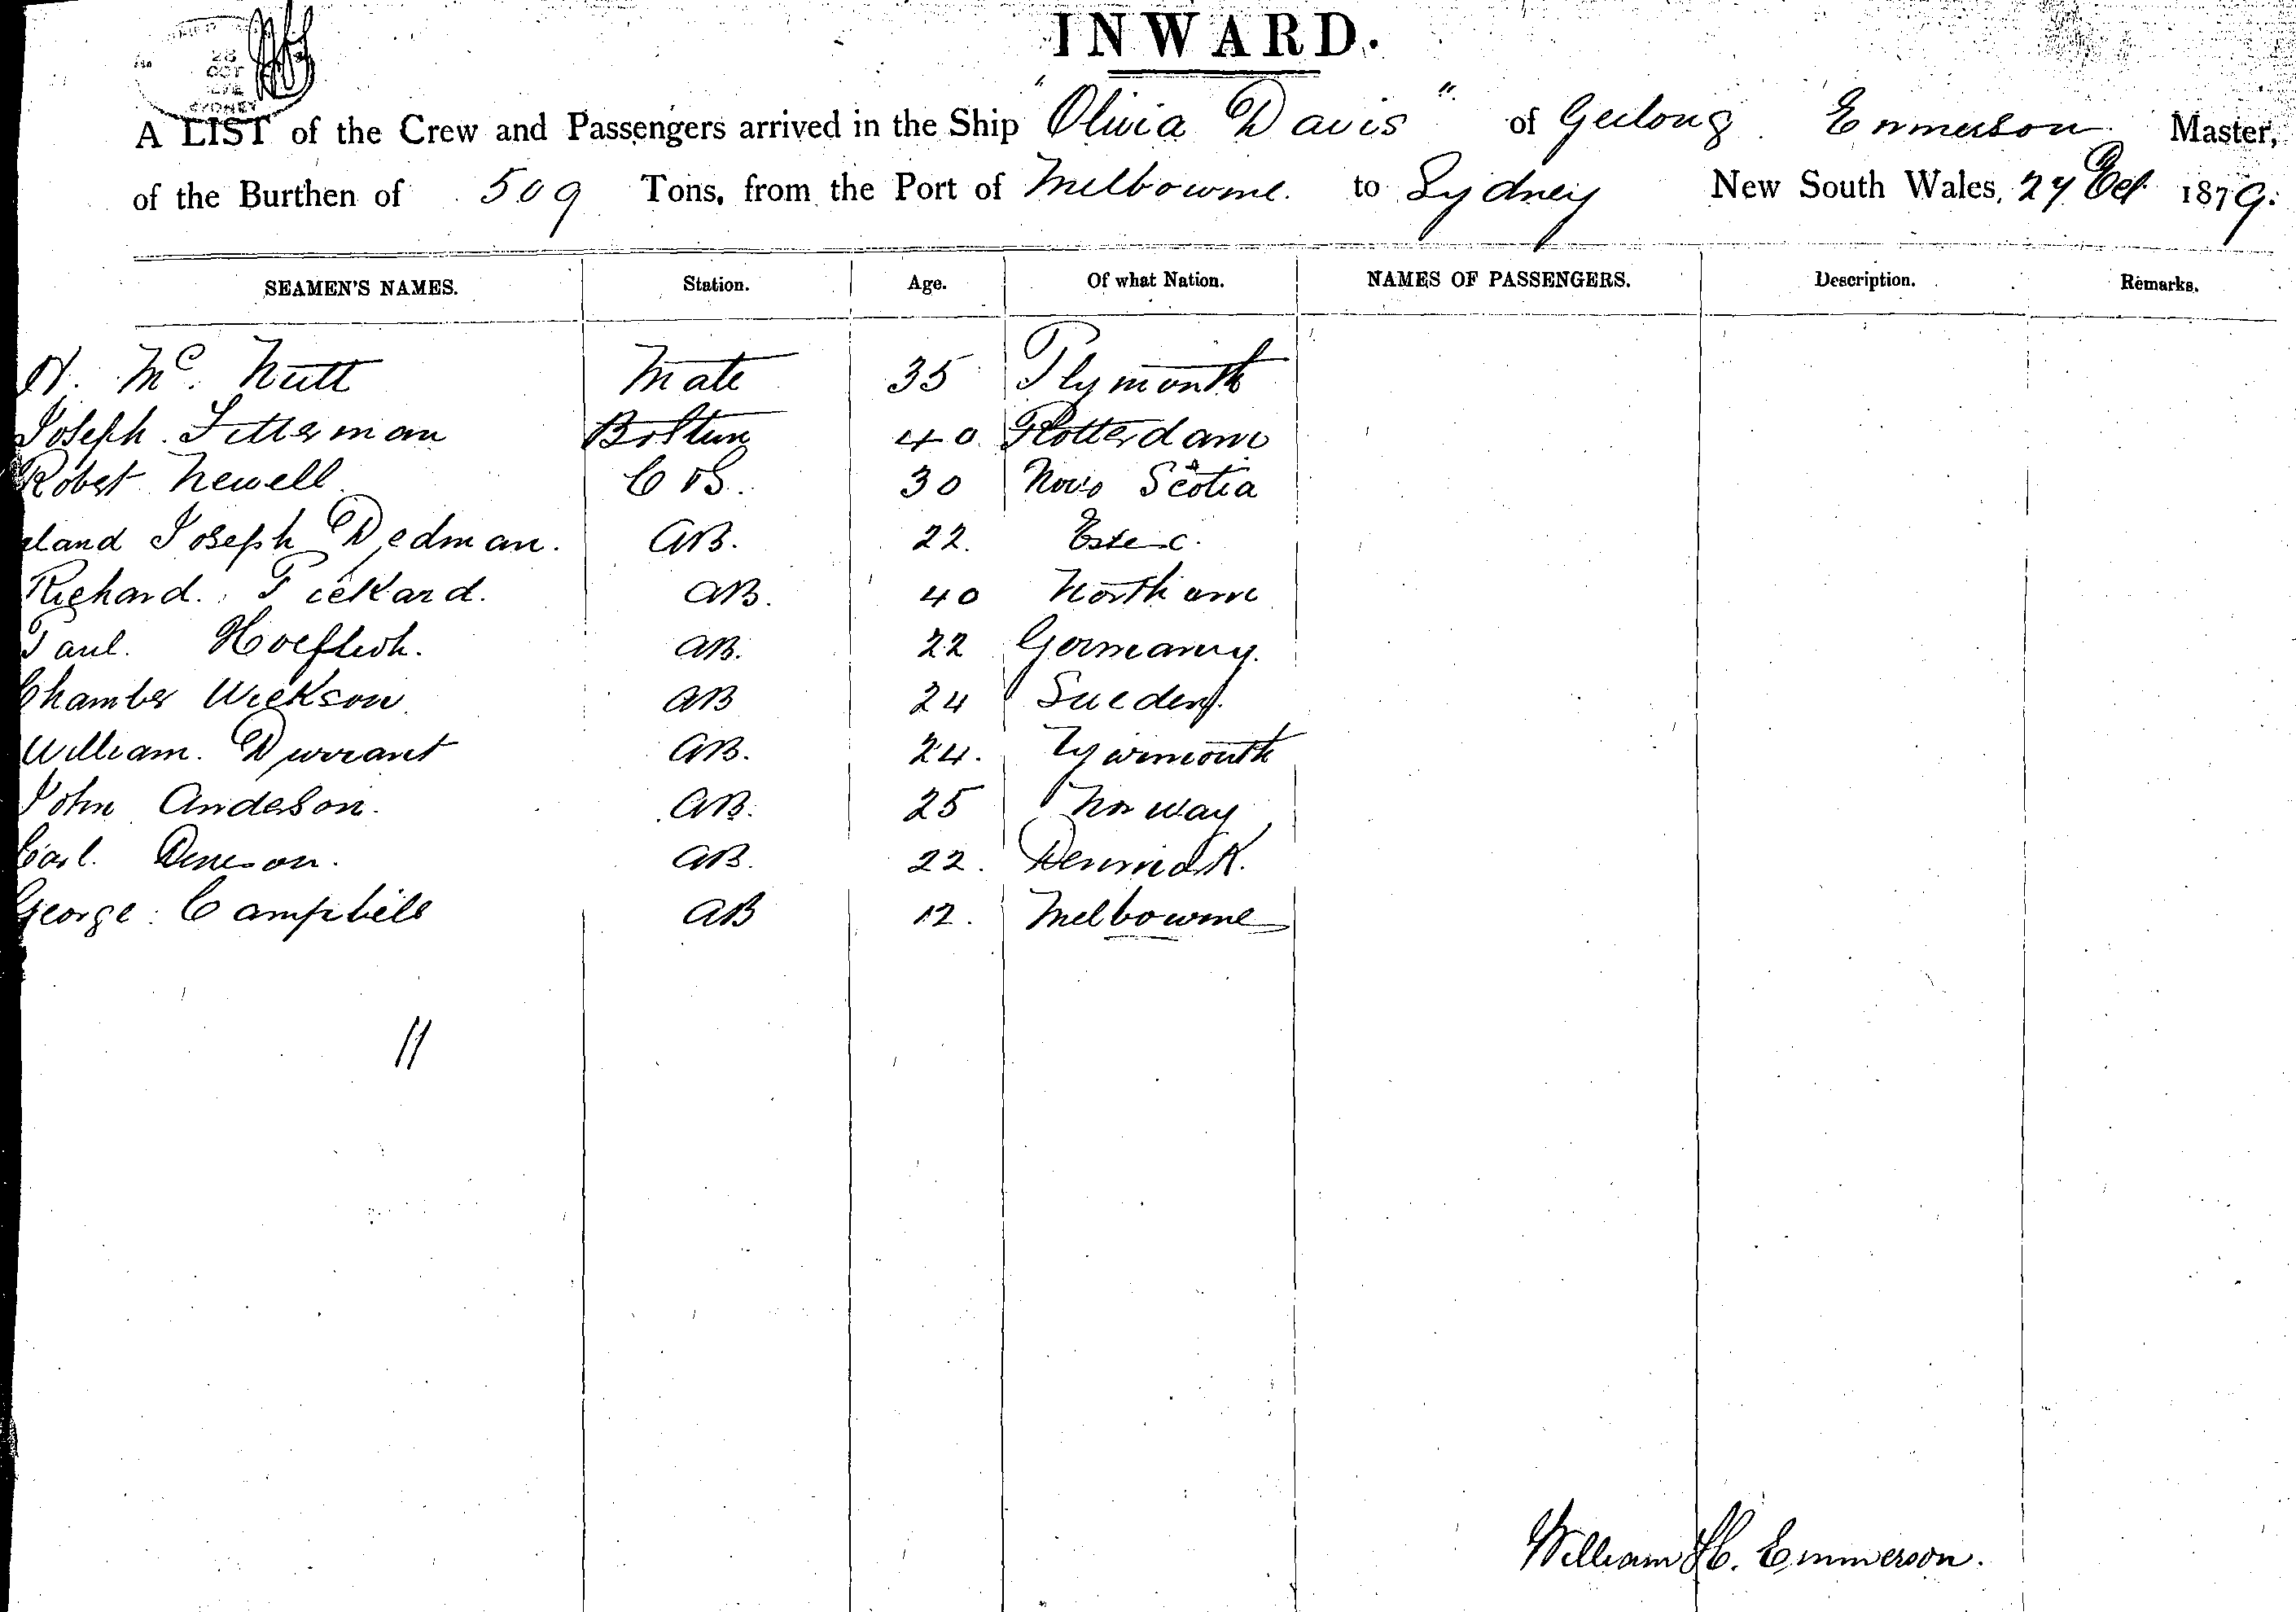 28
OCT
SYDNEY
INWARD.
A LIST of the Crew and Passengers arrived in the Ship "Olivia Davis" of Geelong Emmerson Master,
of the Burthen of 509 Tons, from the Port of Melbourne. to Sydney New South Wales, 27 Oct 1879.
SEAMEN'S NAMES. Station. Age. Of what Nation. NAMES OF PASSENGERS. Description. Remarks.
H. Mc. Nutt Mate 35 Plymouth
Joseph Fetterman 40 Rotterdam
Robert Newell 30 Nova Scotia
Joseph Dedman. AB. 22. Essex.
Richard. Pickard. AB. 40 Northam
Paul. AB. 22 Germany.
Chamber Wickson AB 24 Sueden.
William. Durrant AB. 24. Yarmouth
John Anderson. AB. 25 Norway
Carl. AB. 22. Denmark.
George Campbell AB 12. Melbourne
11
William H. Emmerson.